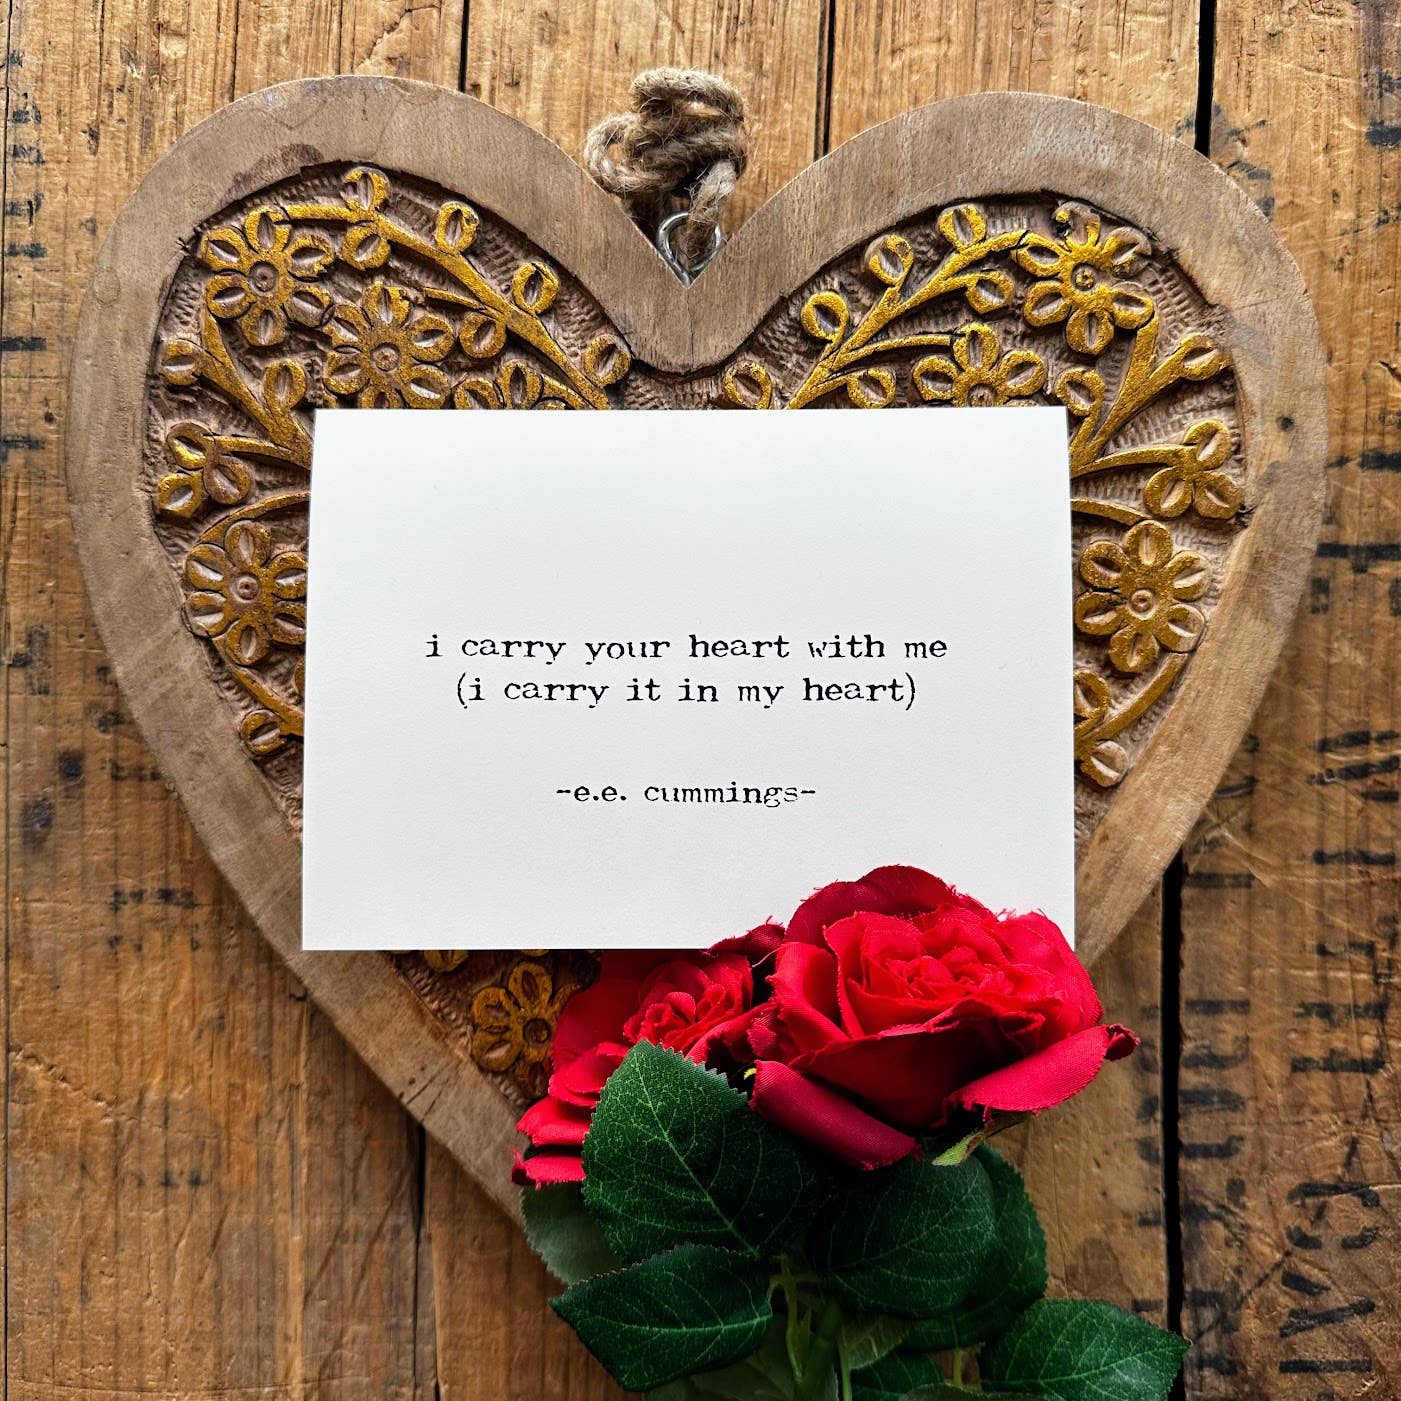 i carry your heart with me
(i carry it in my heart)
-e.e. cummings-